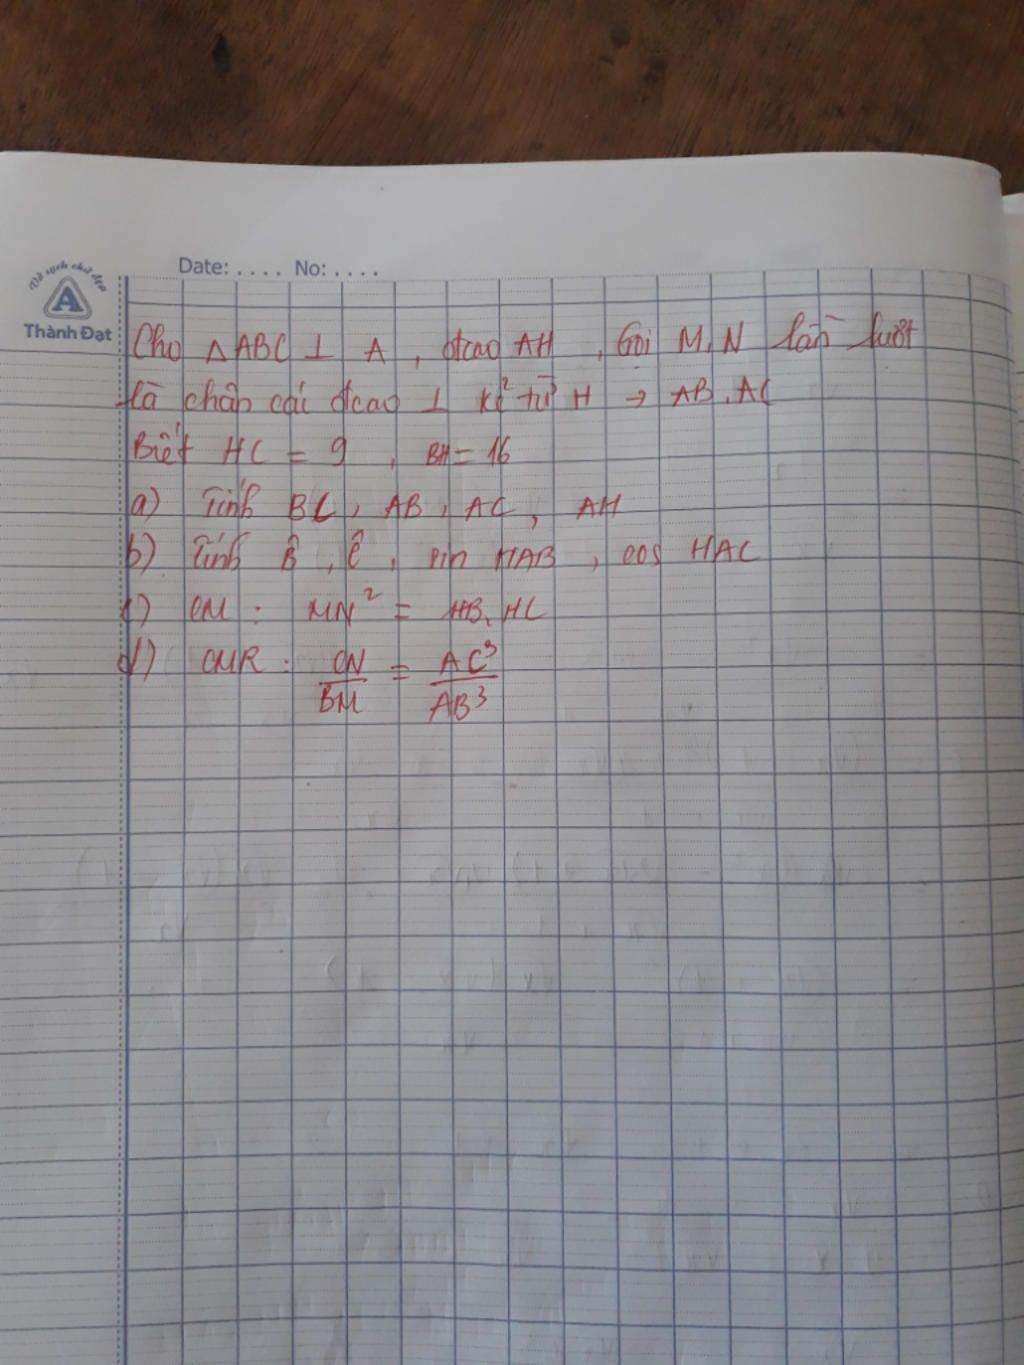 Vở sạch chữ đẹp
A
Thành Đạt
Date: .... No: ....
Cho ΔABC ⊥ A, đcao AH, Gọi M, N lần lượt
là chân các đcao ⊥ kẻ từ H → AB, AC
Biết HC = 9, BH = 16
a) Tính BC, AB, AC, AH
b) Tính B̂, Ĉ, sin HAB, cos HAC
c) CM: MN² = HB. HC
d) CMR: CN/BM = AC³/AB³